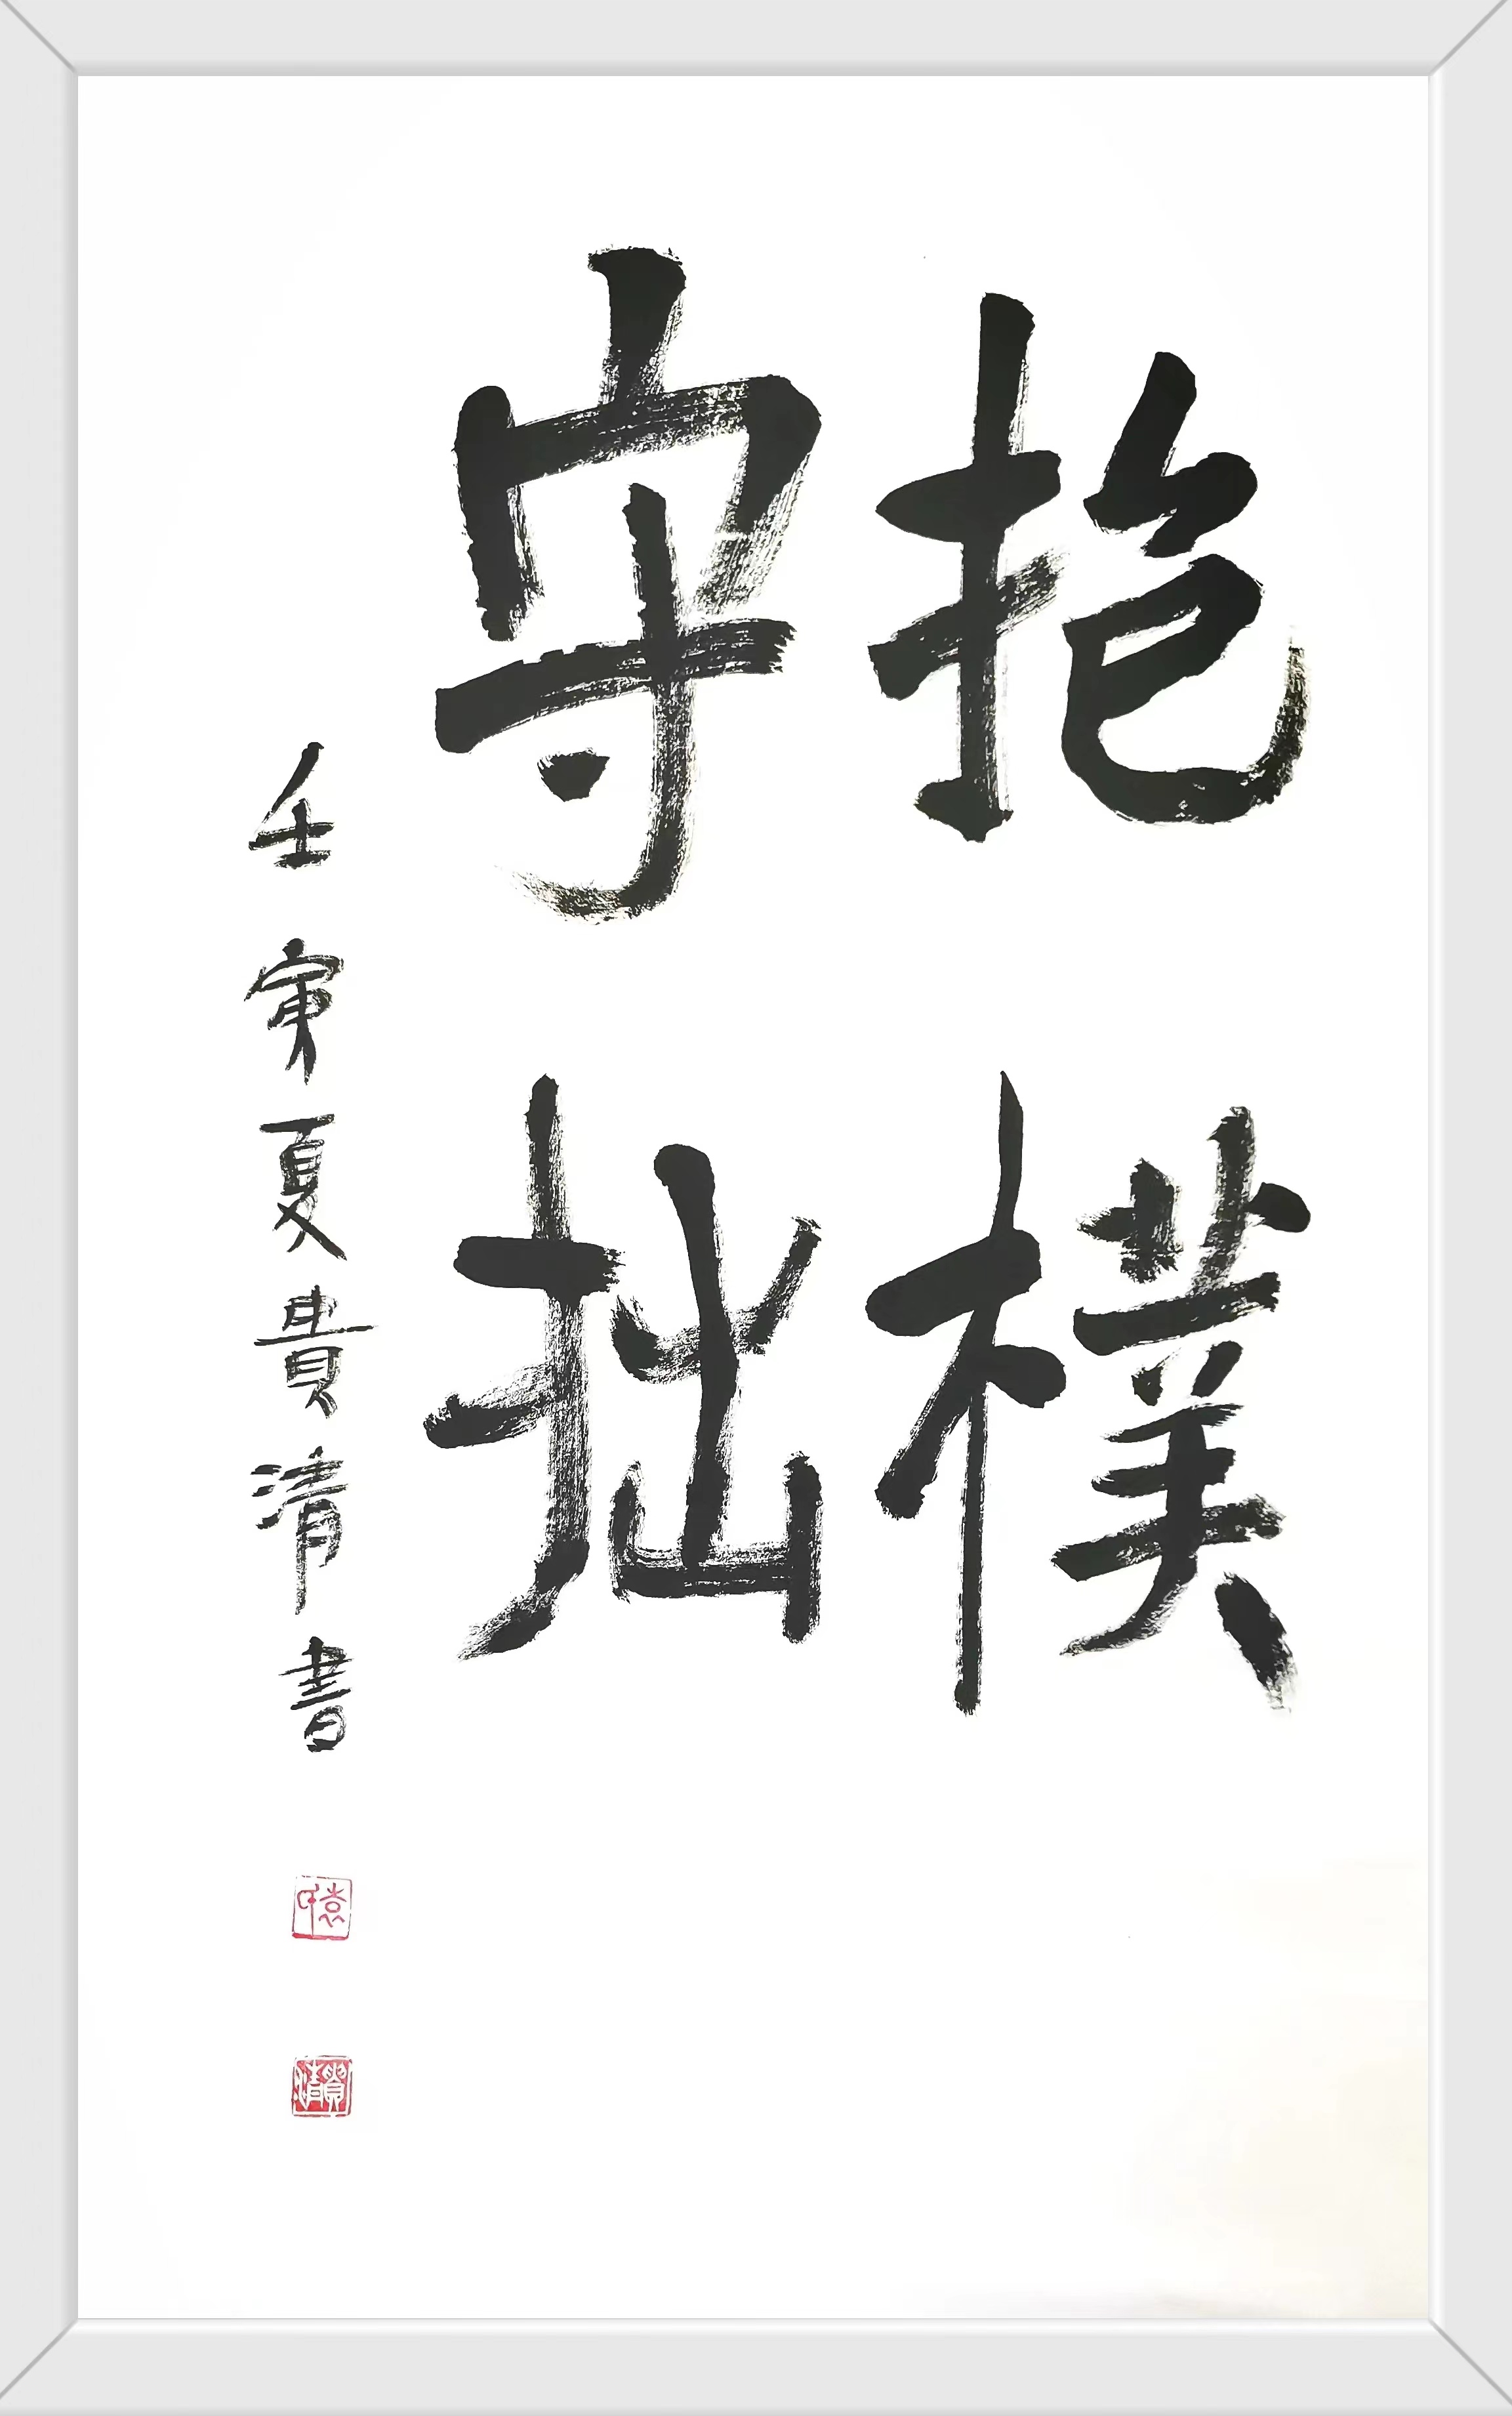 抱樸
守拙
壬寅夏貴清書
貴清